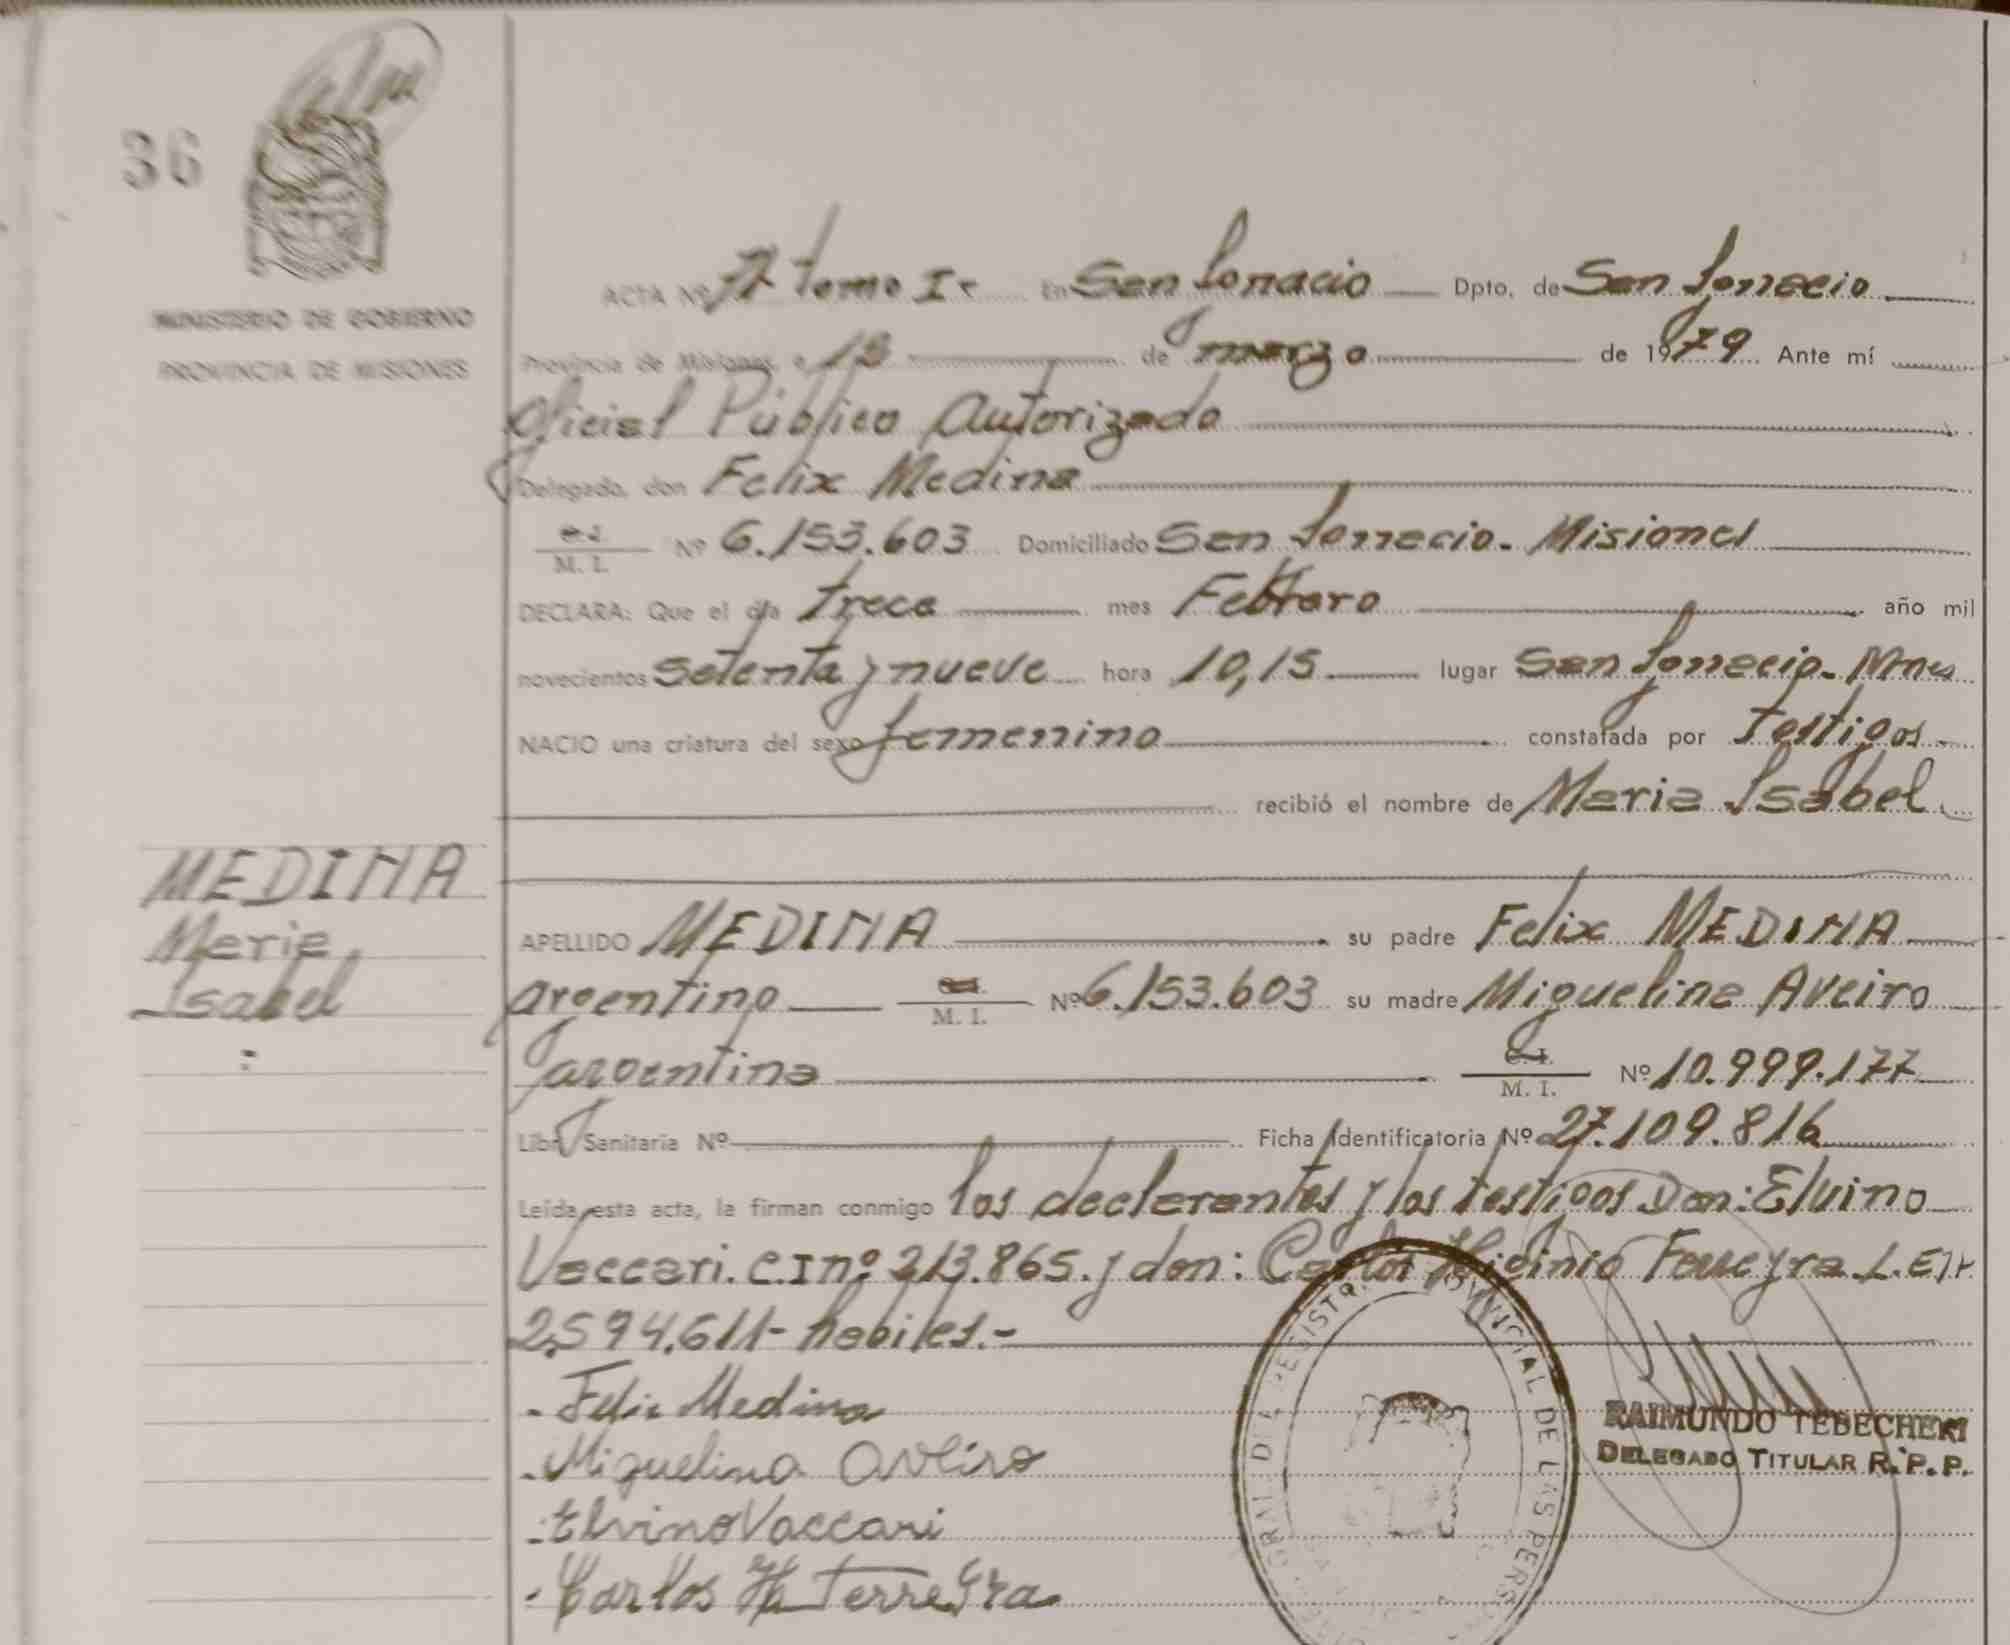 36
MINISTERIO DE GOBIERNO
PROVINCIA DE MISIONES
ACTA Nº 72 tomo I- En San Ignacio Dpto. de San Ignacio
Provincia de Misiones, a 13 de marzo de 1979 Ante mí
Oficial Público Autorizado
Delegado, don Felix Medina
C.I.
M. I. Nº 6.153.603 Domiciliado San Ignacio. Misiones
DECLARA: Que el día trece mes Febrero año mil
novecientos setenta y nueve hora 10,15 lugar San Ignacio. Mnes
NACIO una criatura del sexo femenino constatada por testigos.
recibió el nombre de Maria Isabel
MEDINA
Maria
Isabel
APELLIDO MEDINA su padre Felix MEDINA
argentino M. I. Nº 6.153.603 su madre Miguelina Aveiro
argentina C. I.
M. I. Nº 10.999.177
Libr. Sanitaria Nº Ficha Identificatoria Nº 27.109.816
Leída esta acta, la firman conmigo los declarantes y los testigos Don: Elvino
Vaccari. C.I nº 213.865. y don: Carlos Higinio Ferreyra. L.E nº
2.594.611- habiles.-
- Felix Medina
- Miguelina Aveiro
- Elvino Vaccari
- Carlos H. Ferreyra
RAIMUNDO TEBECHERI
DELEGADO TITULAR R. P. P.
PROVINCIAL DE LAS PERSONAS